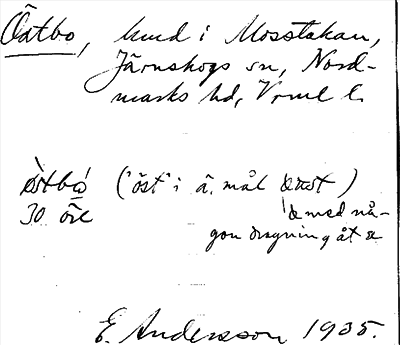 Östbo, hmd i Mosstakan,
Järnskogs sn, Nord-
marks hd, Vrml l.
östbo ("öst" i ä. mål öst)
30 öre
med nå-
gon dragning åt
E. Andersson 1935.